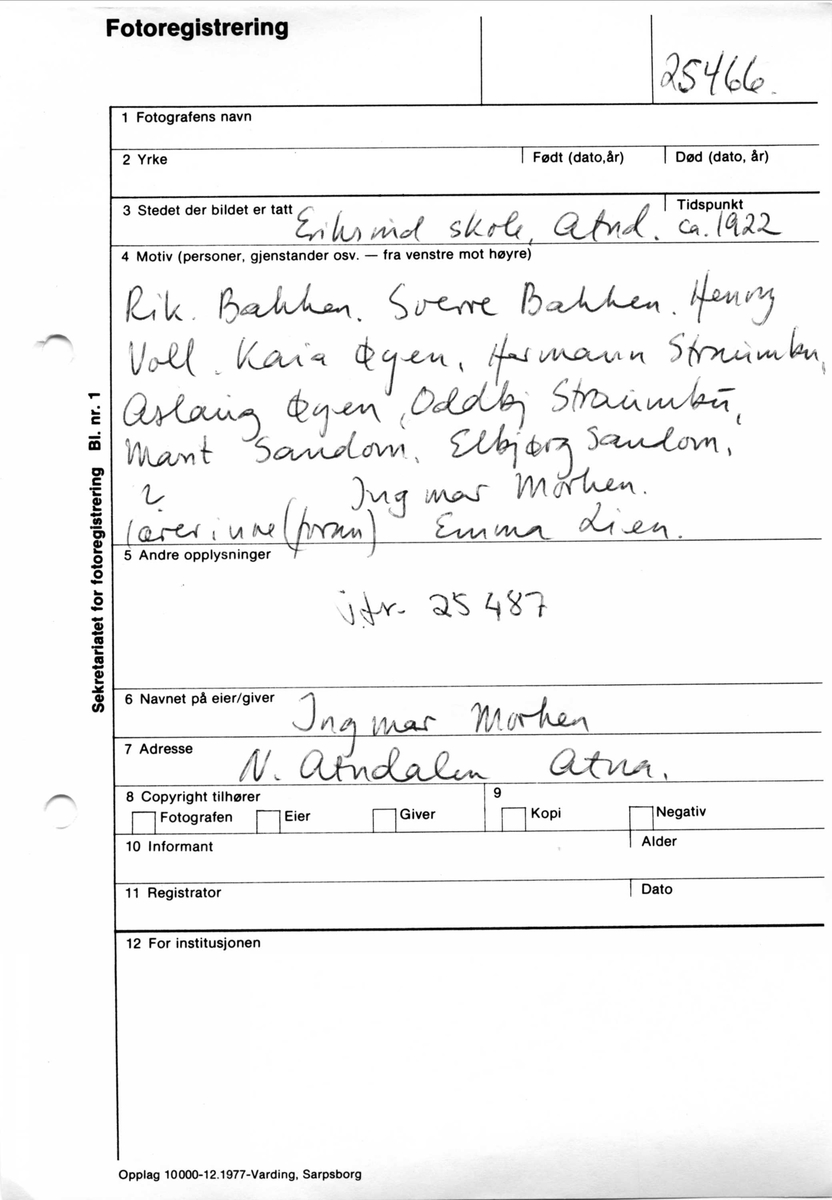 Fotoregistrering
25466.
1 Fotografens navn
2 Yrke Født (dato,år) Død (dato, år)
3 Stedet der bildet er tatt Eriksrud skole, Atnd. Tidspunkt ca. 1922
4 Motiv (personer, gjenstander osv. — fra venstre mot høyre)
Rik. Bakken. Sverre Bakken. Henry
Voll. Kaia Øyen, Hermann Straumbu,
Aslaug Øyen, Oddbj Straumbu,
Marit Sandom, Elbjørg Sandom,
? Ingmar Morken.
lærerinne (foran) Emma Lien.
5 Andre opplysninger
jfr. 25487
6 Navnet på eier/giver Ingmar Morken
7 Adresse N. Atndalen Atna.
8 Copyright tilhører 9
Fotografen Eier Giver Kopi Negativ
10 Informant Alder
11 Registrator Dato
12 For institusjonen
Sekretariatet for fotoregistrering Bl. nr. 1
Opplag 10000-12.1977-Varding, Sarpsborg